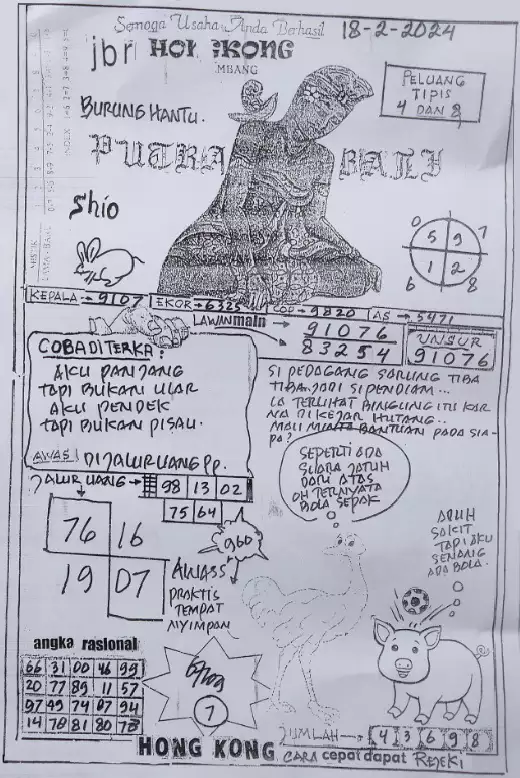 Semoga Usaha Anda Berhasil
18-2-2024
jbr HONGKONG
MBANG
PELUANG
TIPIS
4 DAN 8
BURUNG HANTU.
PUTRA BALI
Shio
0 7
5 9
1 2
6 8
KEPALA → 9107
EKOR → 6325
COP → 9820
AS → 5471
LAWAN main → 91076
83254
UNSUR
91076
COBA DITERKA:
AKU PANJANG
TAPI BUKAN ULAR
AKU PENDEK
TAPI BUKAN PISAU.
AWAS! DIJALUR UANG Pp.
SI PEDAGANG SARUNG TIBA
TIBA JADI SI PENDIAM...
IA TERLIHAT BINGUNG ITU KAR
NA DI KEJAR HUTANG..
MAU MINTA BANTUAN PADA SIA-
PA?
JALUR UANG → 98 13 02
75 64
SEPERTI ADA
SUARA JATUH
DARI ATAS
OH TERNYATA
BOLA SEPAK
76 16
19 07
960
AWASS
PRAKTIS
TEMPAT
NYIMPAN
ADUH
SAKIT
TAPI AKU
SENANG
ADA BOLA.
angka rasional
66 31 00 46 99
20 77 89 11 57
97 49 74 07 94
14 78 81 80 78
7
JUMLAH → 4 3 6 9 8
HONG KONG CARA cepat dapat REJEKI